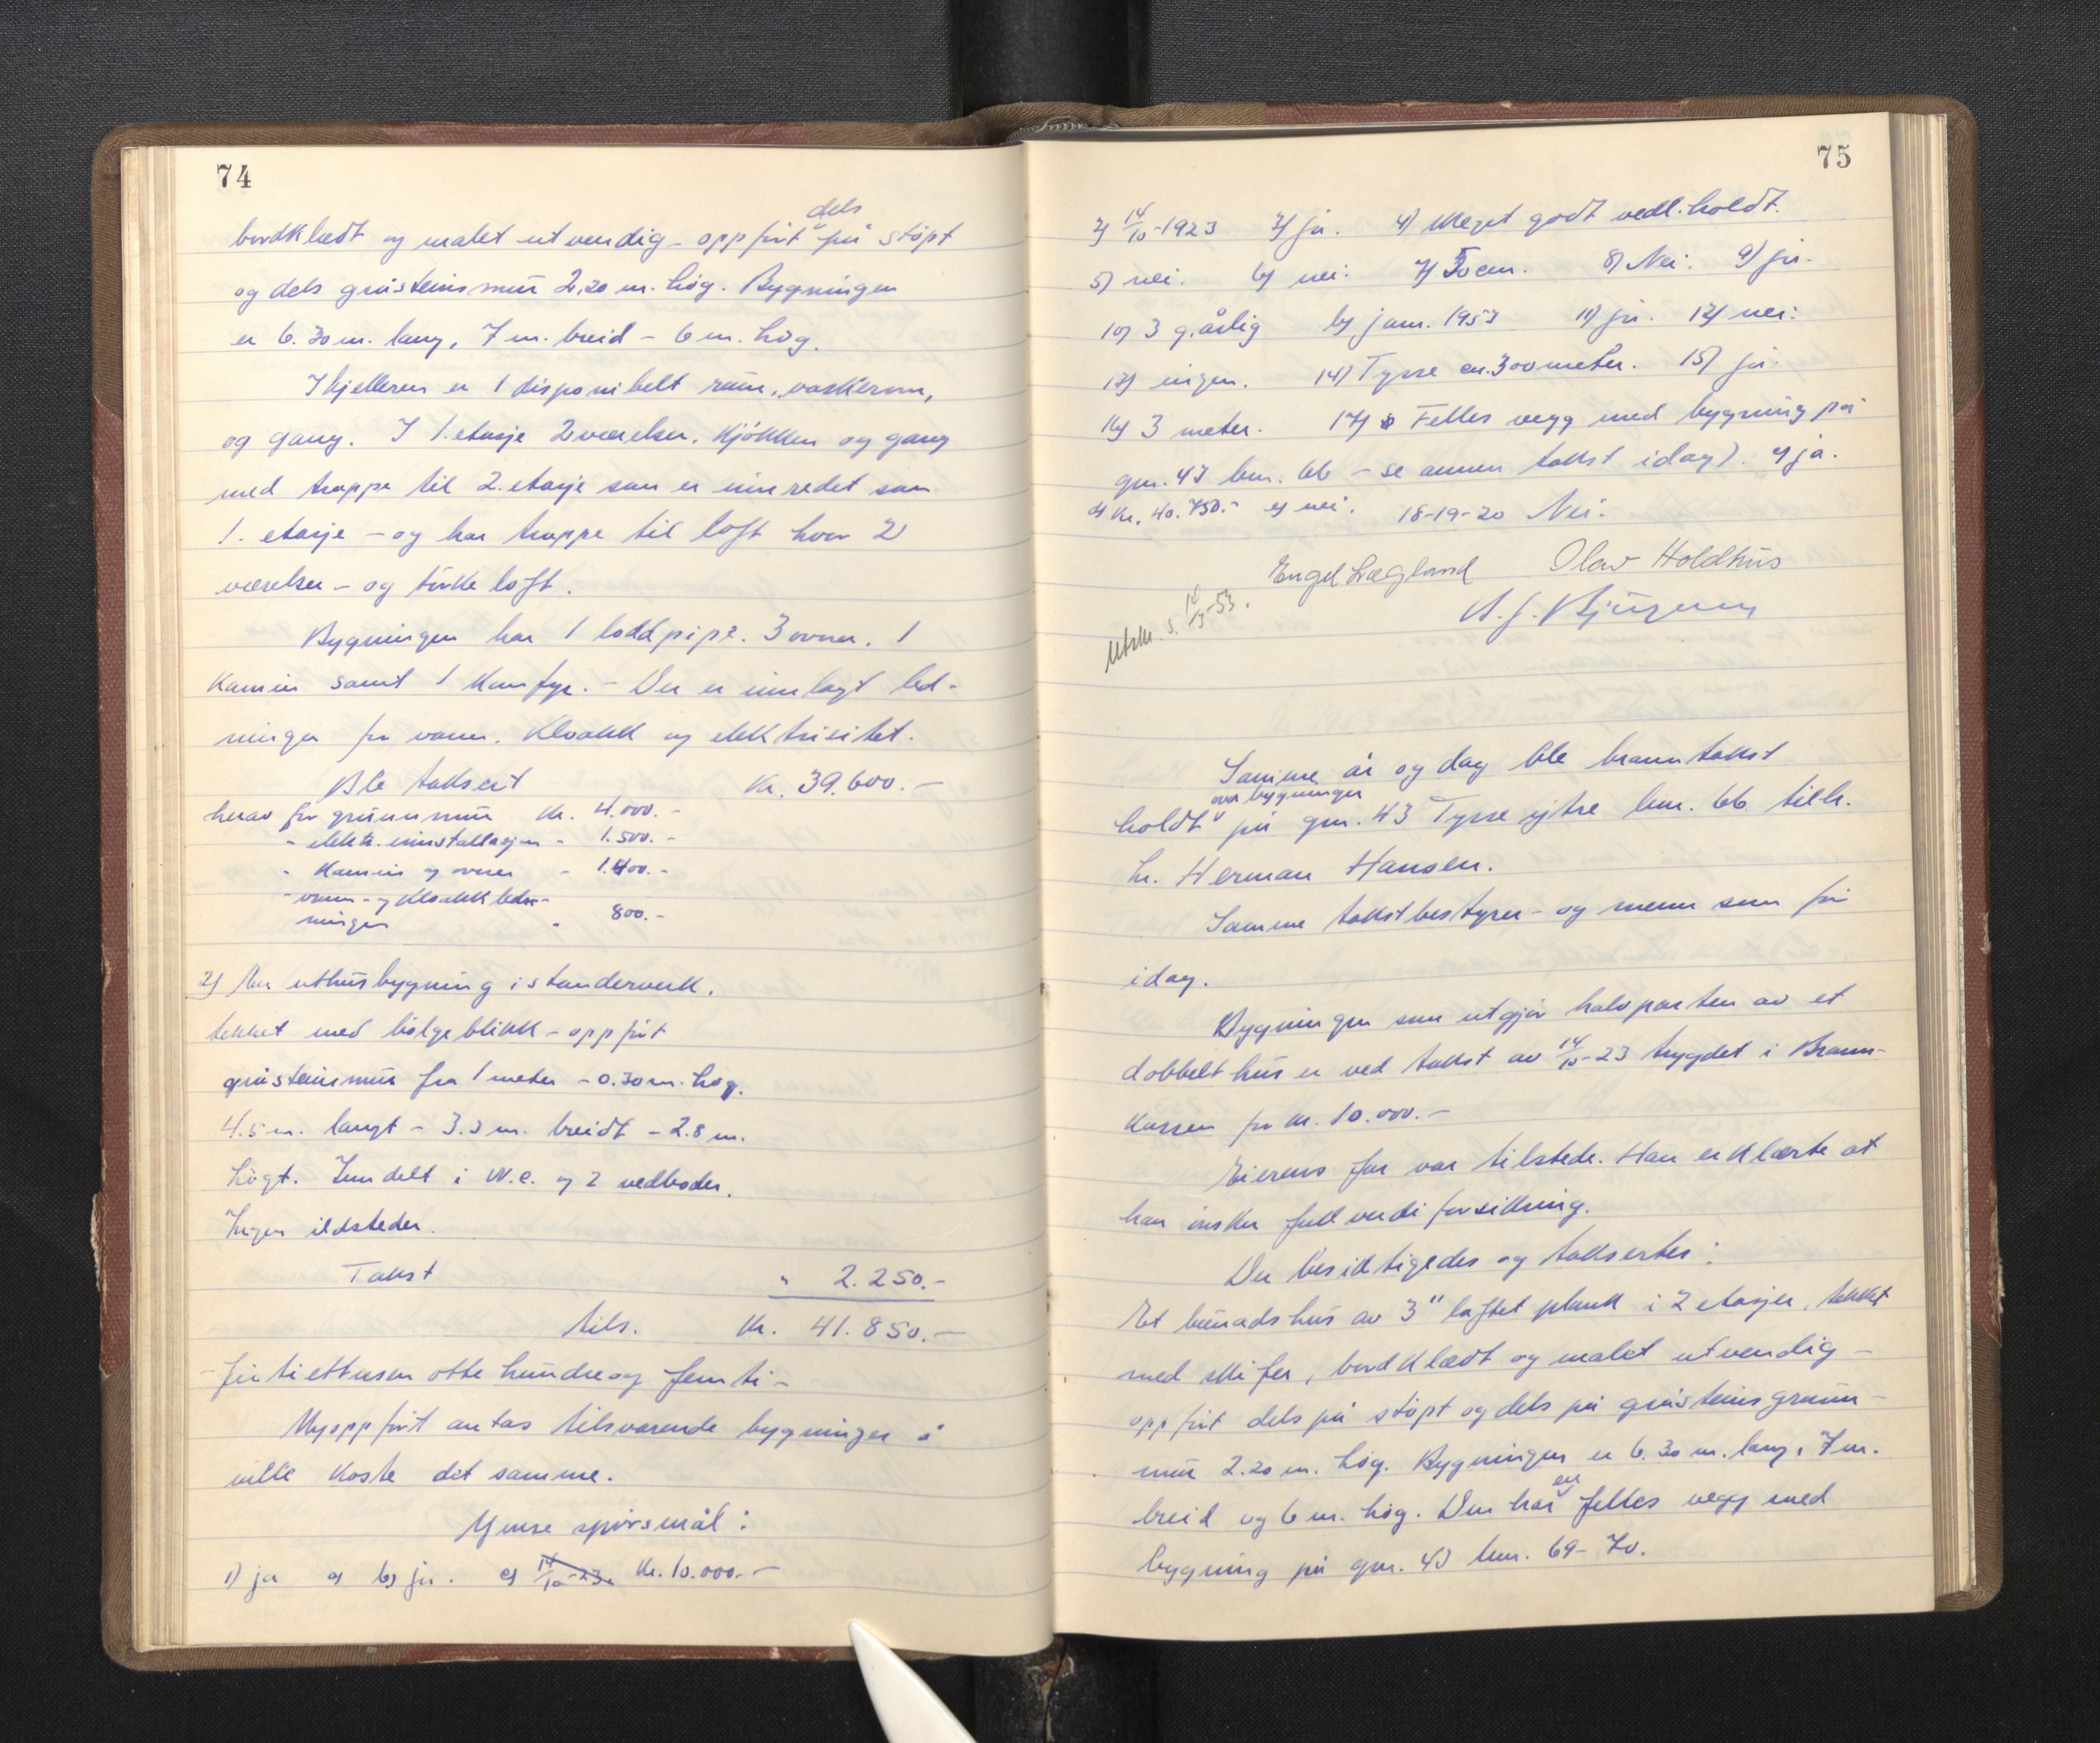 74
bordklædt og malet utvendig - oppført dels på støpt
og dels gråsteinsmur 2,20 m. høg. Bygningen
er 6.30 m. lang, 7 m. breid - 6 m. høg.
I kjelleren er 1 disponibelt rum, vaskerom,
og gang. I 1. etasje 2 værelser, kjøkken og gang
med trappe til 2. etasje som er innredet som
1. etasje - og har trappe til loft hvor 2
værelser - og tørke loft.
Bygningen har 1 loddpipe. 3 ovner. 1
kamin samt 1 komfyr. - Der er innlagt led-
ninger for vann, kloakk og elektrisitet.
Ble taksert Kr. 39.600.-
herav for grunnmur Kr. 4.000.-
- elektr. innstallasjon - 1.500.-
- kamin og ovner - 1.400.-
- vann- og kloakkled-
ninger " 800.-
2) En uthusbygning i standerverk.
tekket med bølgeblikk - oppført
gråsteinsmur fra 1 meter - 0.30 m. høg.
4.5 m. langt - 3.3 m. breidt - 2.8 m.
høgt. Inndelt i W.C. og 2 vedboder.
Ingen ildsteder.
Takst " 2.250.-
tils. Kr. 41.850.-
- førtiettusen otte hundre og femti -
Nyoppført antas tilsvarende bygninger å
ville koste det samme.
Ymse spørsmål:
1) ja a) b) ja. c) 14/10-23. Kr. 10.000.-
75
2) 14/10-1923 3) ja. 4) Meget godt vedl.holdt.
5) nei. 6) nei. 7) 50 cm. 8) Nei. 9) ja.
10) 3 g. årlig b) jan. 1953 11) ja. 12) nei.
13) ingen. 14) Tysse ca. 300 meter. 15) ja.
16) 3 meter. 17) Felles vegg med bygning på
gnr. 43 bnr. 66 - se annen takst idag). c) ja.
d) Kr. 40.750.- e) nei. 18-19-20 Nei.
Engel Lægland Olav Holdhus
Utskr. s. 14/3-53.
Samme år og dag ble branntakst
holdt over bygninger på gnr. 43 Tysse ytre bnr. 66 tilh.
hr. Herman Hansen.
Samme takstbestyrer - og menn som før
idag.
Bygningen som utgjør halvparten av et
dobbelthus er ved takst av 14/10-23 trygdet i Brann-
kassen for kr. 10.000.-
Eierens far var tilstede. Han erklærte at
han ønsker full verdi forsikring.
Der besiktigedes og takserter:
Et bunadshus av 3" laftet plank i 2 etasjer, tekket
med skifer, bordklædt og malet utvendig -
oppført dels på støpt og dels på gråsteinsgrunn-
mur 2.20 m. høg. Bygningen er 6.30 m. lang, 7 m.
breid og 6 m. høg. Den har en felles vegg med
bygning på gnr. 43 bnr. 69-70.